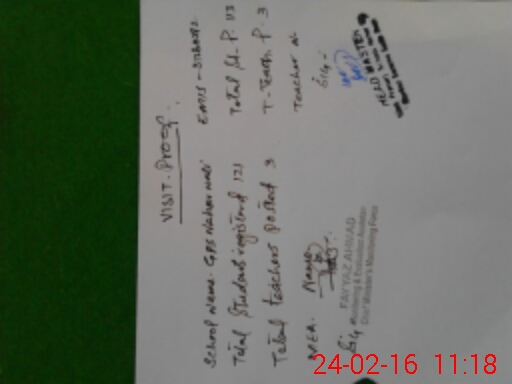 VISIT. Proof.
School Name. GPS
EMIS -
Total Student registered 121
Total St. P. 113
Total teachers posted 3
T- Teach. P. 3
Teacher
MEA. Name
Sig
FAYYAZ AHMAD
Monitoring & Evaluation Assistant
Chief Minister's Monitoring Force
Sig
HEAD MASTER
24-02-16 11:18